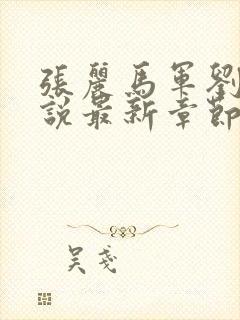 張麗馬軍劉
說最新章節
吳戔